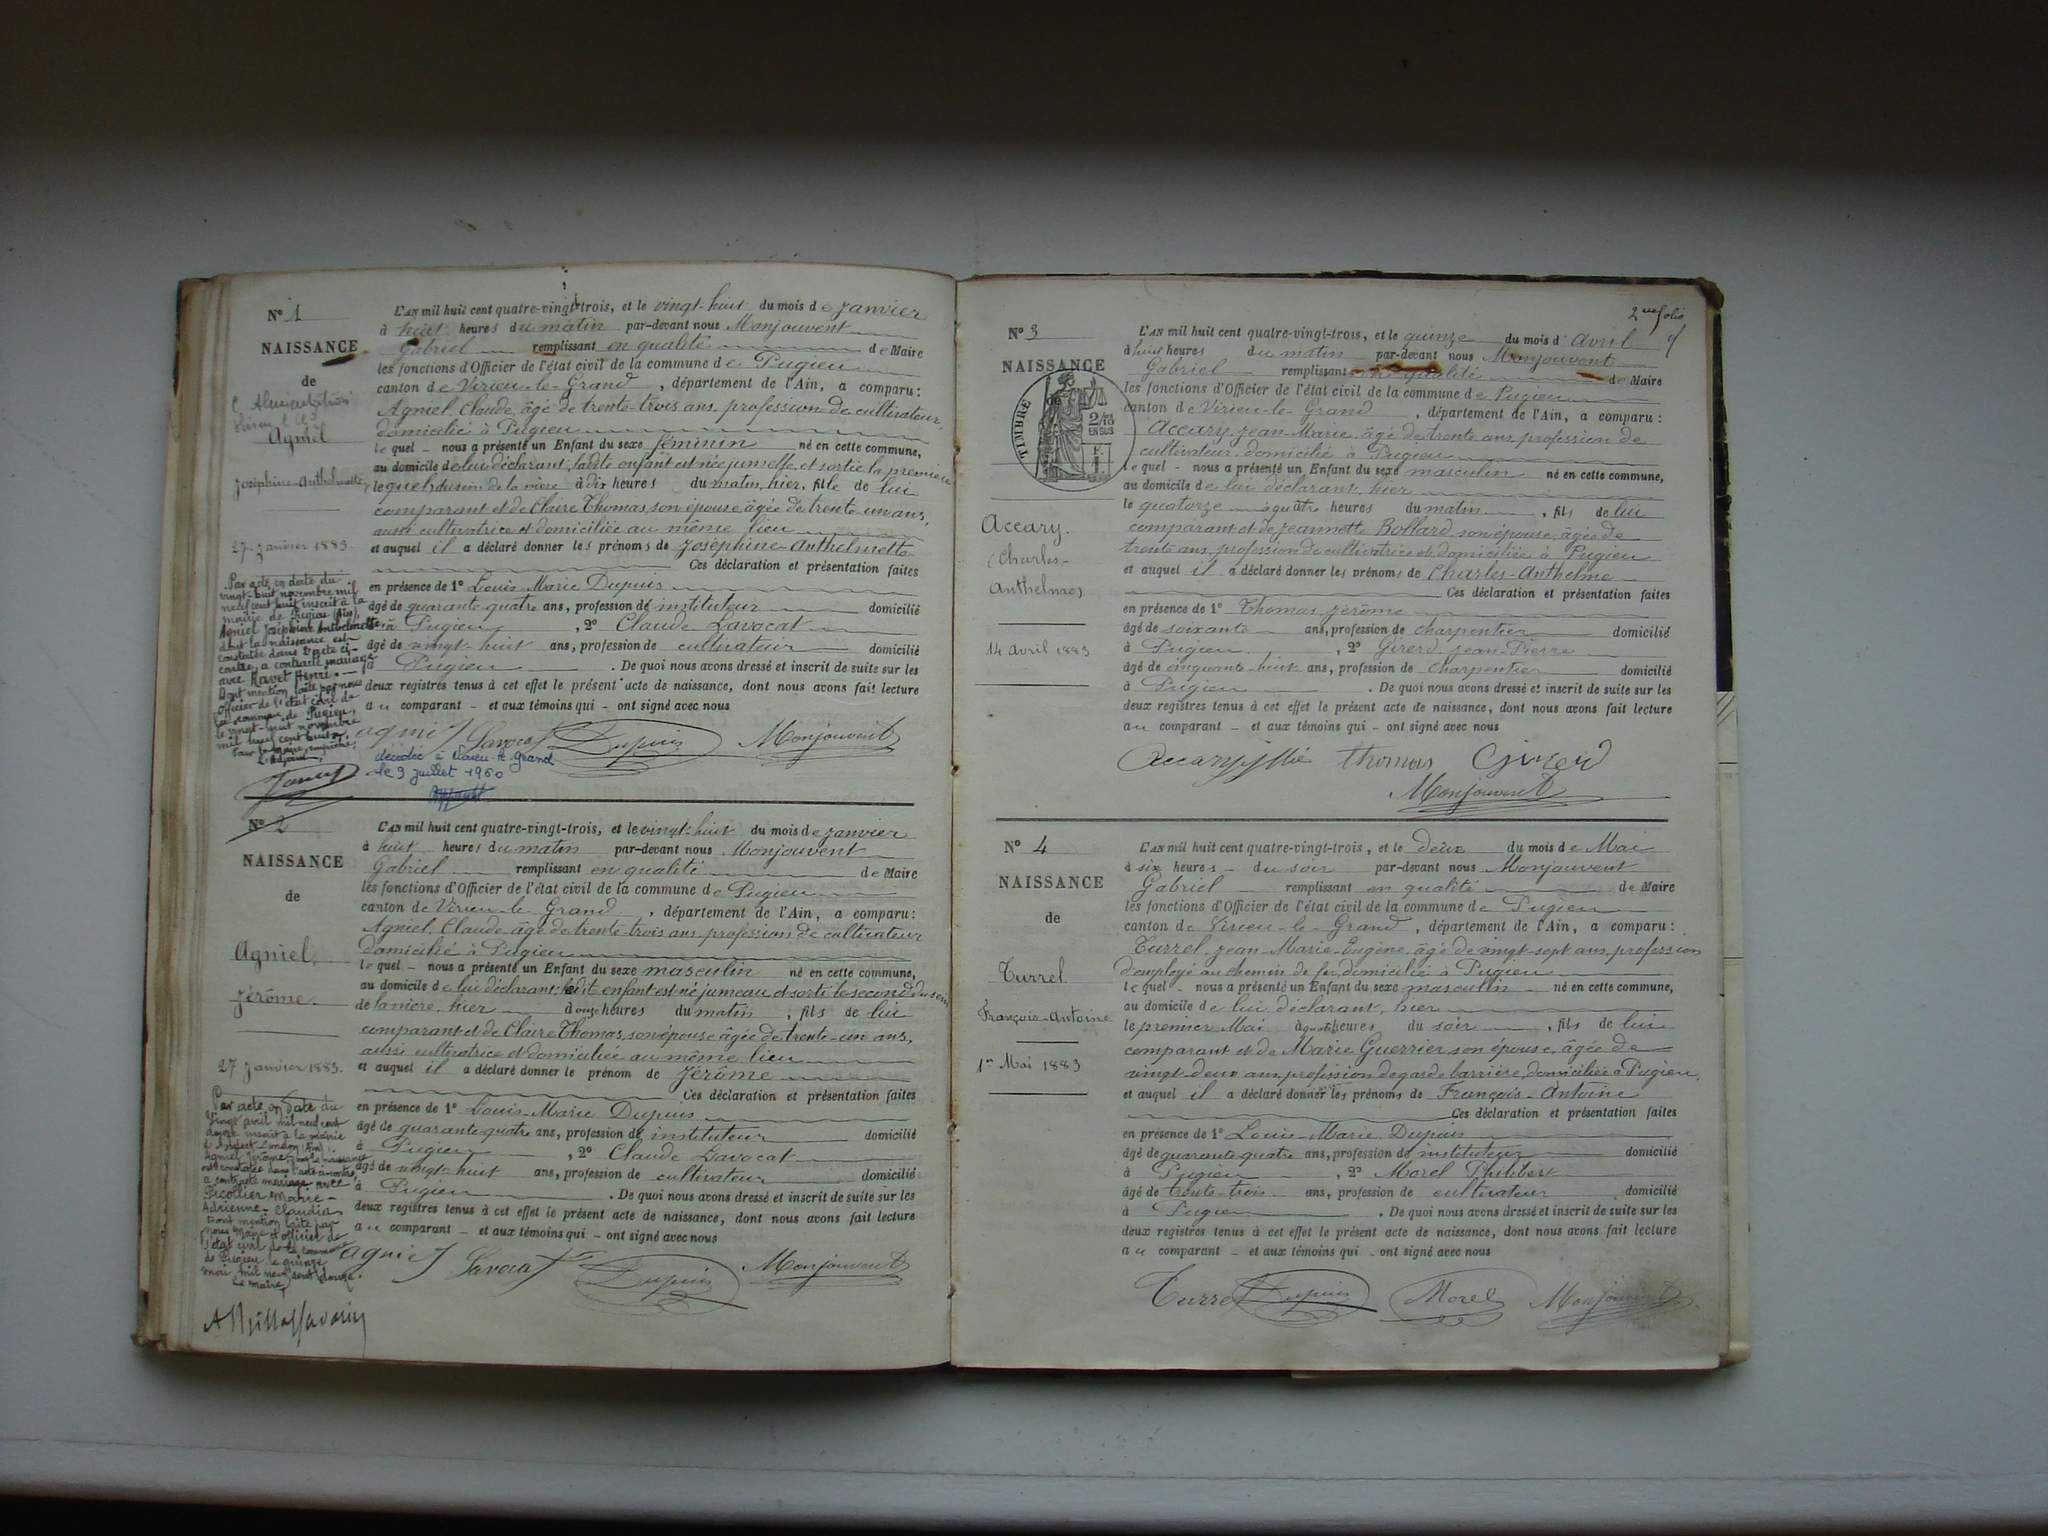 Nº 1
NAISSANCE
de
Agniel
Joséphine-Anthelmette
27 Janvier 1883
Par acte en date du
vingt-huit novembre mil
neuf cent huit inscrit à la
mairie de Pugieu (Ain)
Agniel Joséphine Anthelmette
dont la naissance est
constatée dans l'acte ci-
contre, a contracté mariage
avec Ravet Henri.
Dont mention faite par nous
officier de l'état civil de
la commune de Pugieu,
le vingt-huit novembre
mil neuf cent huit.
L'AN mil huit cent quatre-vingt-trois, et le vingt-huit du mois de Janvier
à huit heures du matin par-devant nous Monjouvent
Gabriel remplissant en qualité de Maire
les fonctions d'Officier de l'état civil de la commune de Pugieu
canton de Virieu-le-Grand, département de l'Ain, a comparu:
Agniel Claude, âgé de trente-trois ans, profession de cultivateur,
domicilié à Pugieu
lequel - nous a présenté un Enfant du sexe féminin né en cette commune,
au domicile de lui déclarant, ladite enfant est née jumelle et sortie la première
du sein de la mère à dix heures du matin, hier, fille de lui
comparant et de Claire Thomas, son épouse âgée de trente-un ans,
aussi cultivatrice et domiciliée au même lieu
et auquel il a déclaré donner les prénoms de Joséphine-Anthelmette
Ces déclaration et présentation faites
en présence de 1º Louis-Marie Dupuis
âgé de quarante-quatre ans, profession de instituteur domicilié
à Pugieu, 2º Claude Lavocat
âgé de vingt-huit ans, profession de cultivateur domicilié
à Pugieu. De quoi nous avons dressé et inscrit de suite sur les
deux registres tenus à cet effet le présent acte de naissance, dont nous avons fait lecture
au comparant - et aux témoins qui - ont signé avec nous
Agniel Lavocat Dupuis Monjouvent
décédée à Virieu-le-Grand
le 9 juillet 1960
Nº 2
NAISSANCE
de
Agniel
Jérôme
27 Janvier 1883.
Par acte en date du
vingt avril mil neuf cent
douze inscrit à la mairie
Agniel Jérôme, dont la naissance
est constatée dans l'acte ci-contre,
a contracté mariage avec
Picollier Marie-
Adrienne-Claudia
Dont mention faite par
nous Maire et officier de
l'état civil de la commune
de Pugieu le quinze
mai mil neuf cent douze.
Le maire,
L'AN mil huit cent quatre-vingt-trois, et le vingt-huit du mois de Janvier
à huit heures du matin par-devant nous Monjouvent
Gabriel remplissant en qualité de Maire
les fonctions d'Officier de l'état civil de la commune de Pugieu
canton de Virieu-le-Grand, département de l'Ain, a comparu:
Agniel Claude âgé de trente-trois ans, profession de cultivateur
domicilié à Pugieu
lequel - nous a présenté un Enfant du sexe masculin né en cette commune,
au domicile de lui déclarant, ledit enfant est né jumeau et sorti le second du sein
de la mère, hier à onze heures du matin, fils de lui
comparant et de Claire Thomas, son épouse âgée de trente-un ans,
aussi cultivatrice et domiciliée au même lieu
et auquel il a déclaré donner le prénom de Jérôme
Ces déclaration et présentation faites
en présence de 1º Louis-Marie Dupuis
âgé de quarante-quatre ans, profession de instituteur domicilié
à Pugieu, 2º Claude Lavocat
âgé de vingt-huit ans, profession de cultivateur domicilié
à Pugieu. De quoi nous avons dressé et inscrit de suite sur les
deux registres tenus à cet effet le présent acte de naissance, dont nous avons fait lecture
au comparant - et aux témoins qui - ont signé avec nous
Agniel Lavocat Dupuis Monjouvent
2me folio
Nº 3
NAISSANCE
de
TIMBRE
2/10
EN SUS
F.
1.
Accary
Charles-
Anthelme
14 Avril 1883
L'AN mil huit cent quatre-vingt-trois, et le quinze du mois d'Avril
à huit heures du matin par-devant nous Monjouvent
Gabriel remplissant en qualité de Maire
les fonctions d'Officier de l'état civil de la commune de Pugieu
canton de Virieu-le-Grand, département de l'Ain, a comparu:
Accary Jean-Marie âgé de trente ans, profession de
cultivateur, domicilié à Pugieu
lequel - nous a présenté un Enfant du sexe masculin né en cette commune,
au domicile de lui déclarant, hier
le quatorze à quatre heures du matin, fils de lui
comparant et de Jeannette Bollard, son épouse, âgée de
trente ans, profession de cultivatrice et domiciliée à Pugieu
et auquel il a déclaré donner les prénoms de Charles-Anthelme
Ces déclaration et présentation faites
en présence de 1º Thomas Jérôme
âgé de soixante ans, profession de charpentier domicilié
à Pugieu, 2º Girerd Jean-Pierre
âgé de cinquante-huit ans, profession de charpentier domicilié
à Pugieu. De quoi nous avons dressé et inscrit de suite sur les
deux registres tenus à cet effet le présent acte de naissance, dont nous avons fait lecture
au comparant - et aux témoins qui - ont signé avec nous
Accary Thomas Girerd
Monjouvent
Nº 4
NAISSANCE
de
Turrel
François-Antoine
1er Mai 1883
L'AN mil huit cent quatre-vingt-trois, et le deux du mois de Mai
à six heures - du soir par-devant nous Monjouvent
Gabriel remplissant en qualité de Maire
les fonctions d'Officier de l'état civil de la commune de Pugieu
canton de Virieu-le-Grand, département de l'Ain, a comparu:
Turrel Jean-Marie-Eugène, âgé de vingt-sept ans, profession
d'employé au chemin de fer, domicilié à Pugieu
lequel - nous a présenté un Enfant du sexe masculin - né en cette commune,
au domicile de lui déclarant, hier
le premier Mai à quatre heures du soir, fils de lui
comparant et de Marie Guerrier son épouse, âgée de
vingt-deux ans, profession de garde barrière, domiciliée à Pugieu,
et auquel il a déclaré donner les prénoms de François-Antoine
Ces déclaration et présentation faites
en présence de 1º Louis-Marie Dupuis
âgé de quarante-quatre ans, profession de instituteur domicilié
à Pugieu, 2º Morel Philibert
âgé de trente-trois ans, profession de cultivateur domicilié
à Pugieu. De quoi nous avons dressé et inscrit de suite sur les
deux registres tenus à cet effet le présent acte de naissance, dont nous avons fait lecture
au comparant - et aux témoins qui - ont signé avec nous
Turrel Dupuis Morel Monjouvent